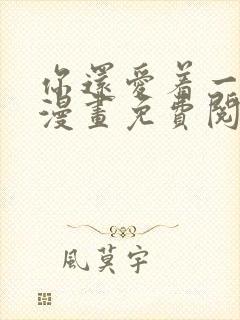 你還愛着一
漫畫免費閱
風莫宇